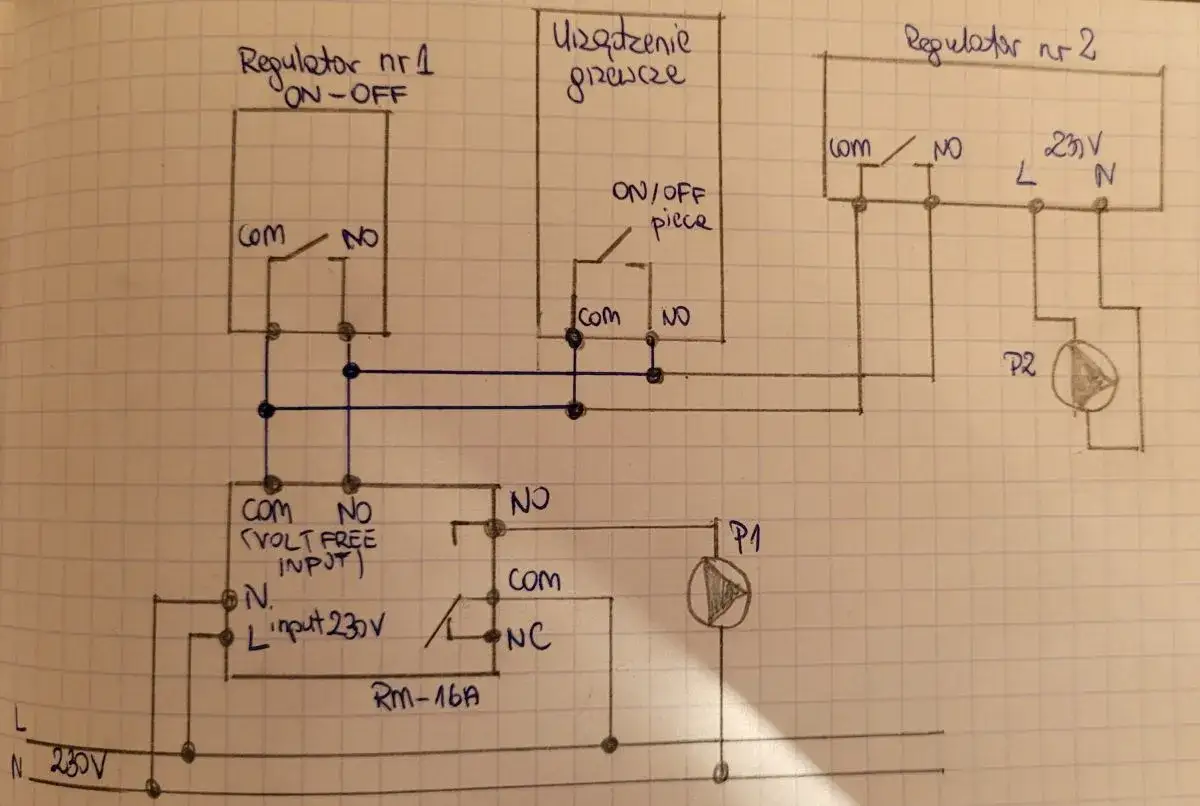 Regulator nr 1
ON-OFF
COM
NO
Urządzenie
grzewcze
ON/OFF
pieca
COM
NO
Regulator nr 2
COM
NO
230V
L
N
P2
COM
NO
(VOLT FREE
INPUT)
N.
L input 230V
NO
COM
NC
RM-16A
P1
L
N
230V